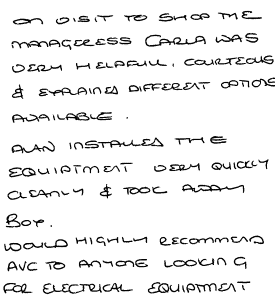 ON VISIT TO SHOP THE
MANAGERESS CARLA WAS
VERY HELPFULL, COURTEOUS
& EXPLAINED DIFFERENT OPTIONS
AVAILABLE.
ALAN INSTALLED THE
EQUIPTMENT VERY QUICKLY
CLEANLY & TOOK AWAY
BOX.
WOULD HIGHLY RECOMMEND
AVC TO ANYONE LOOKING
FOR ELECTRICAL EQUIPTMENT